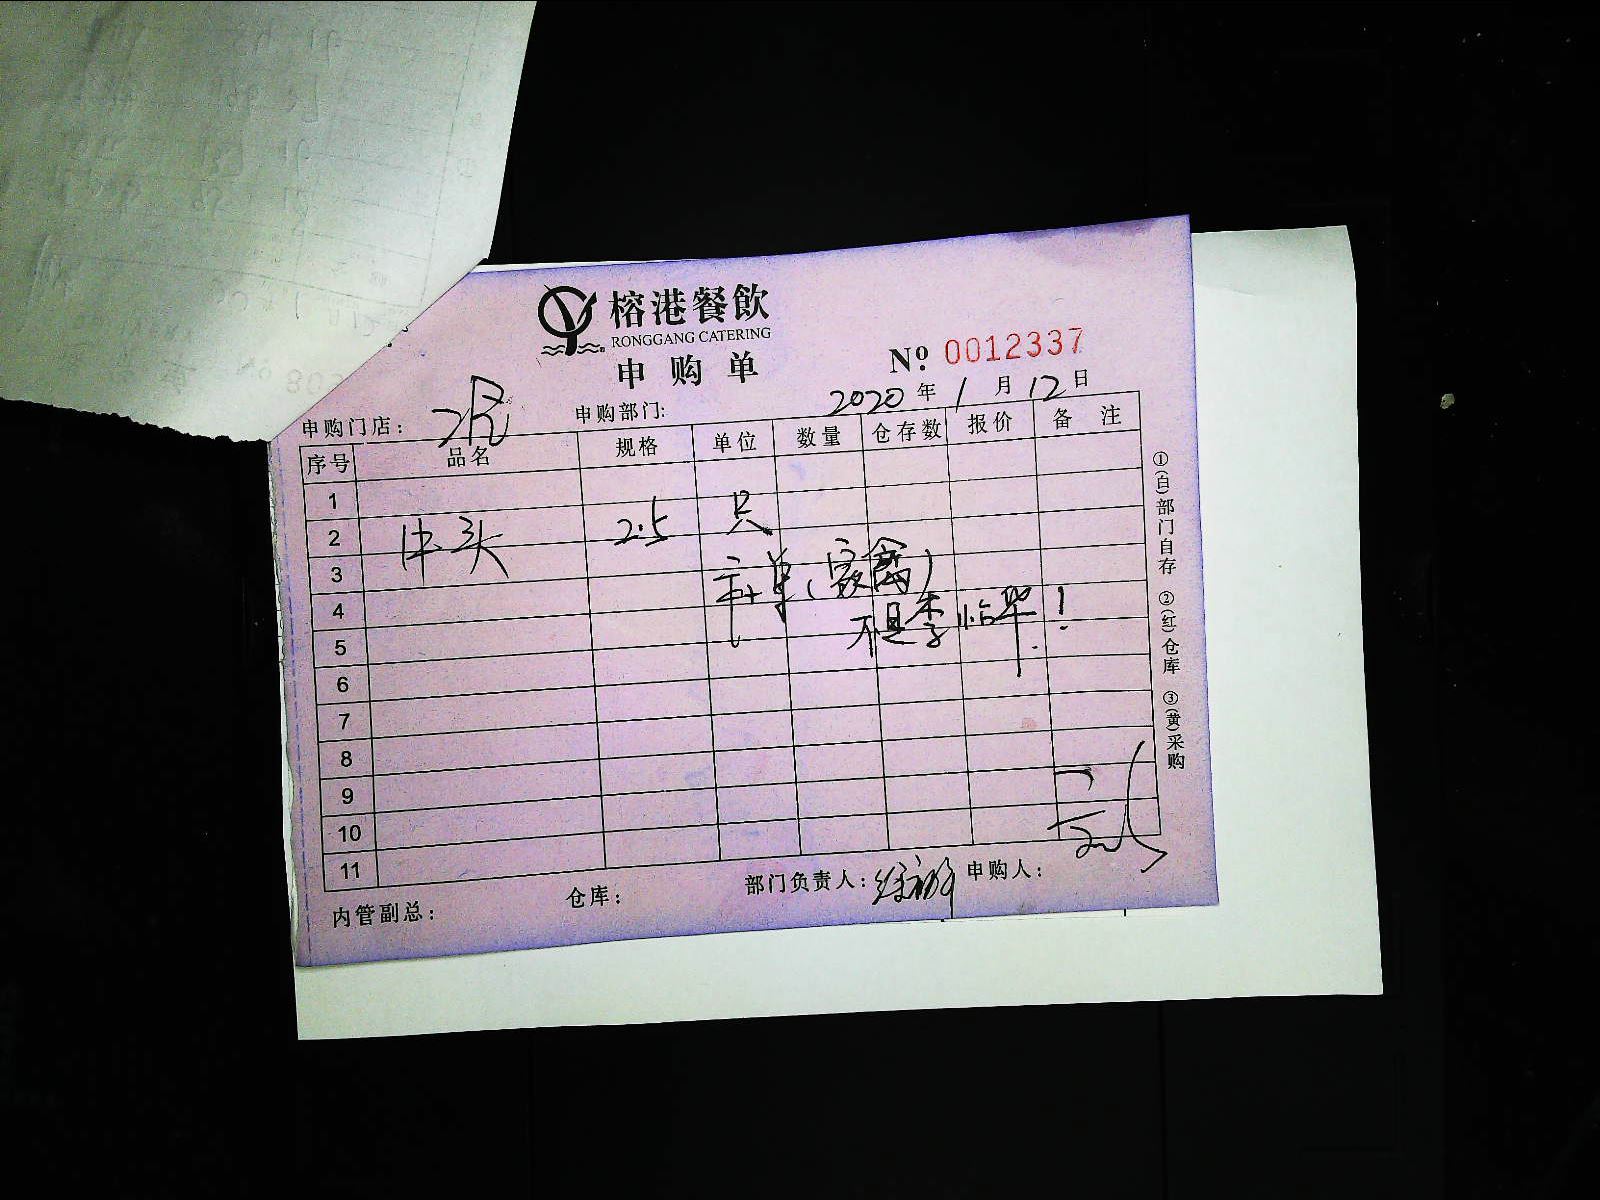 榕港餐飲
RONGGANG CATERING
申购单
Nº 0012337
2020年1月12日
申购门店：
申购部门：
序号 品名 规格 单位 数量 仓存数 报价 备注
1
2 头 2.5 只
3
（家禽）
4
不是李临华！
5
6
7
8
9
10
11
内管副总： 仓库： 部门负责人： 申购人：
①(白)部门自存 ②(红)仓库 ③(黄)采购